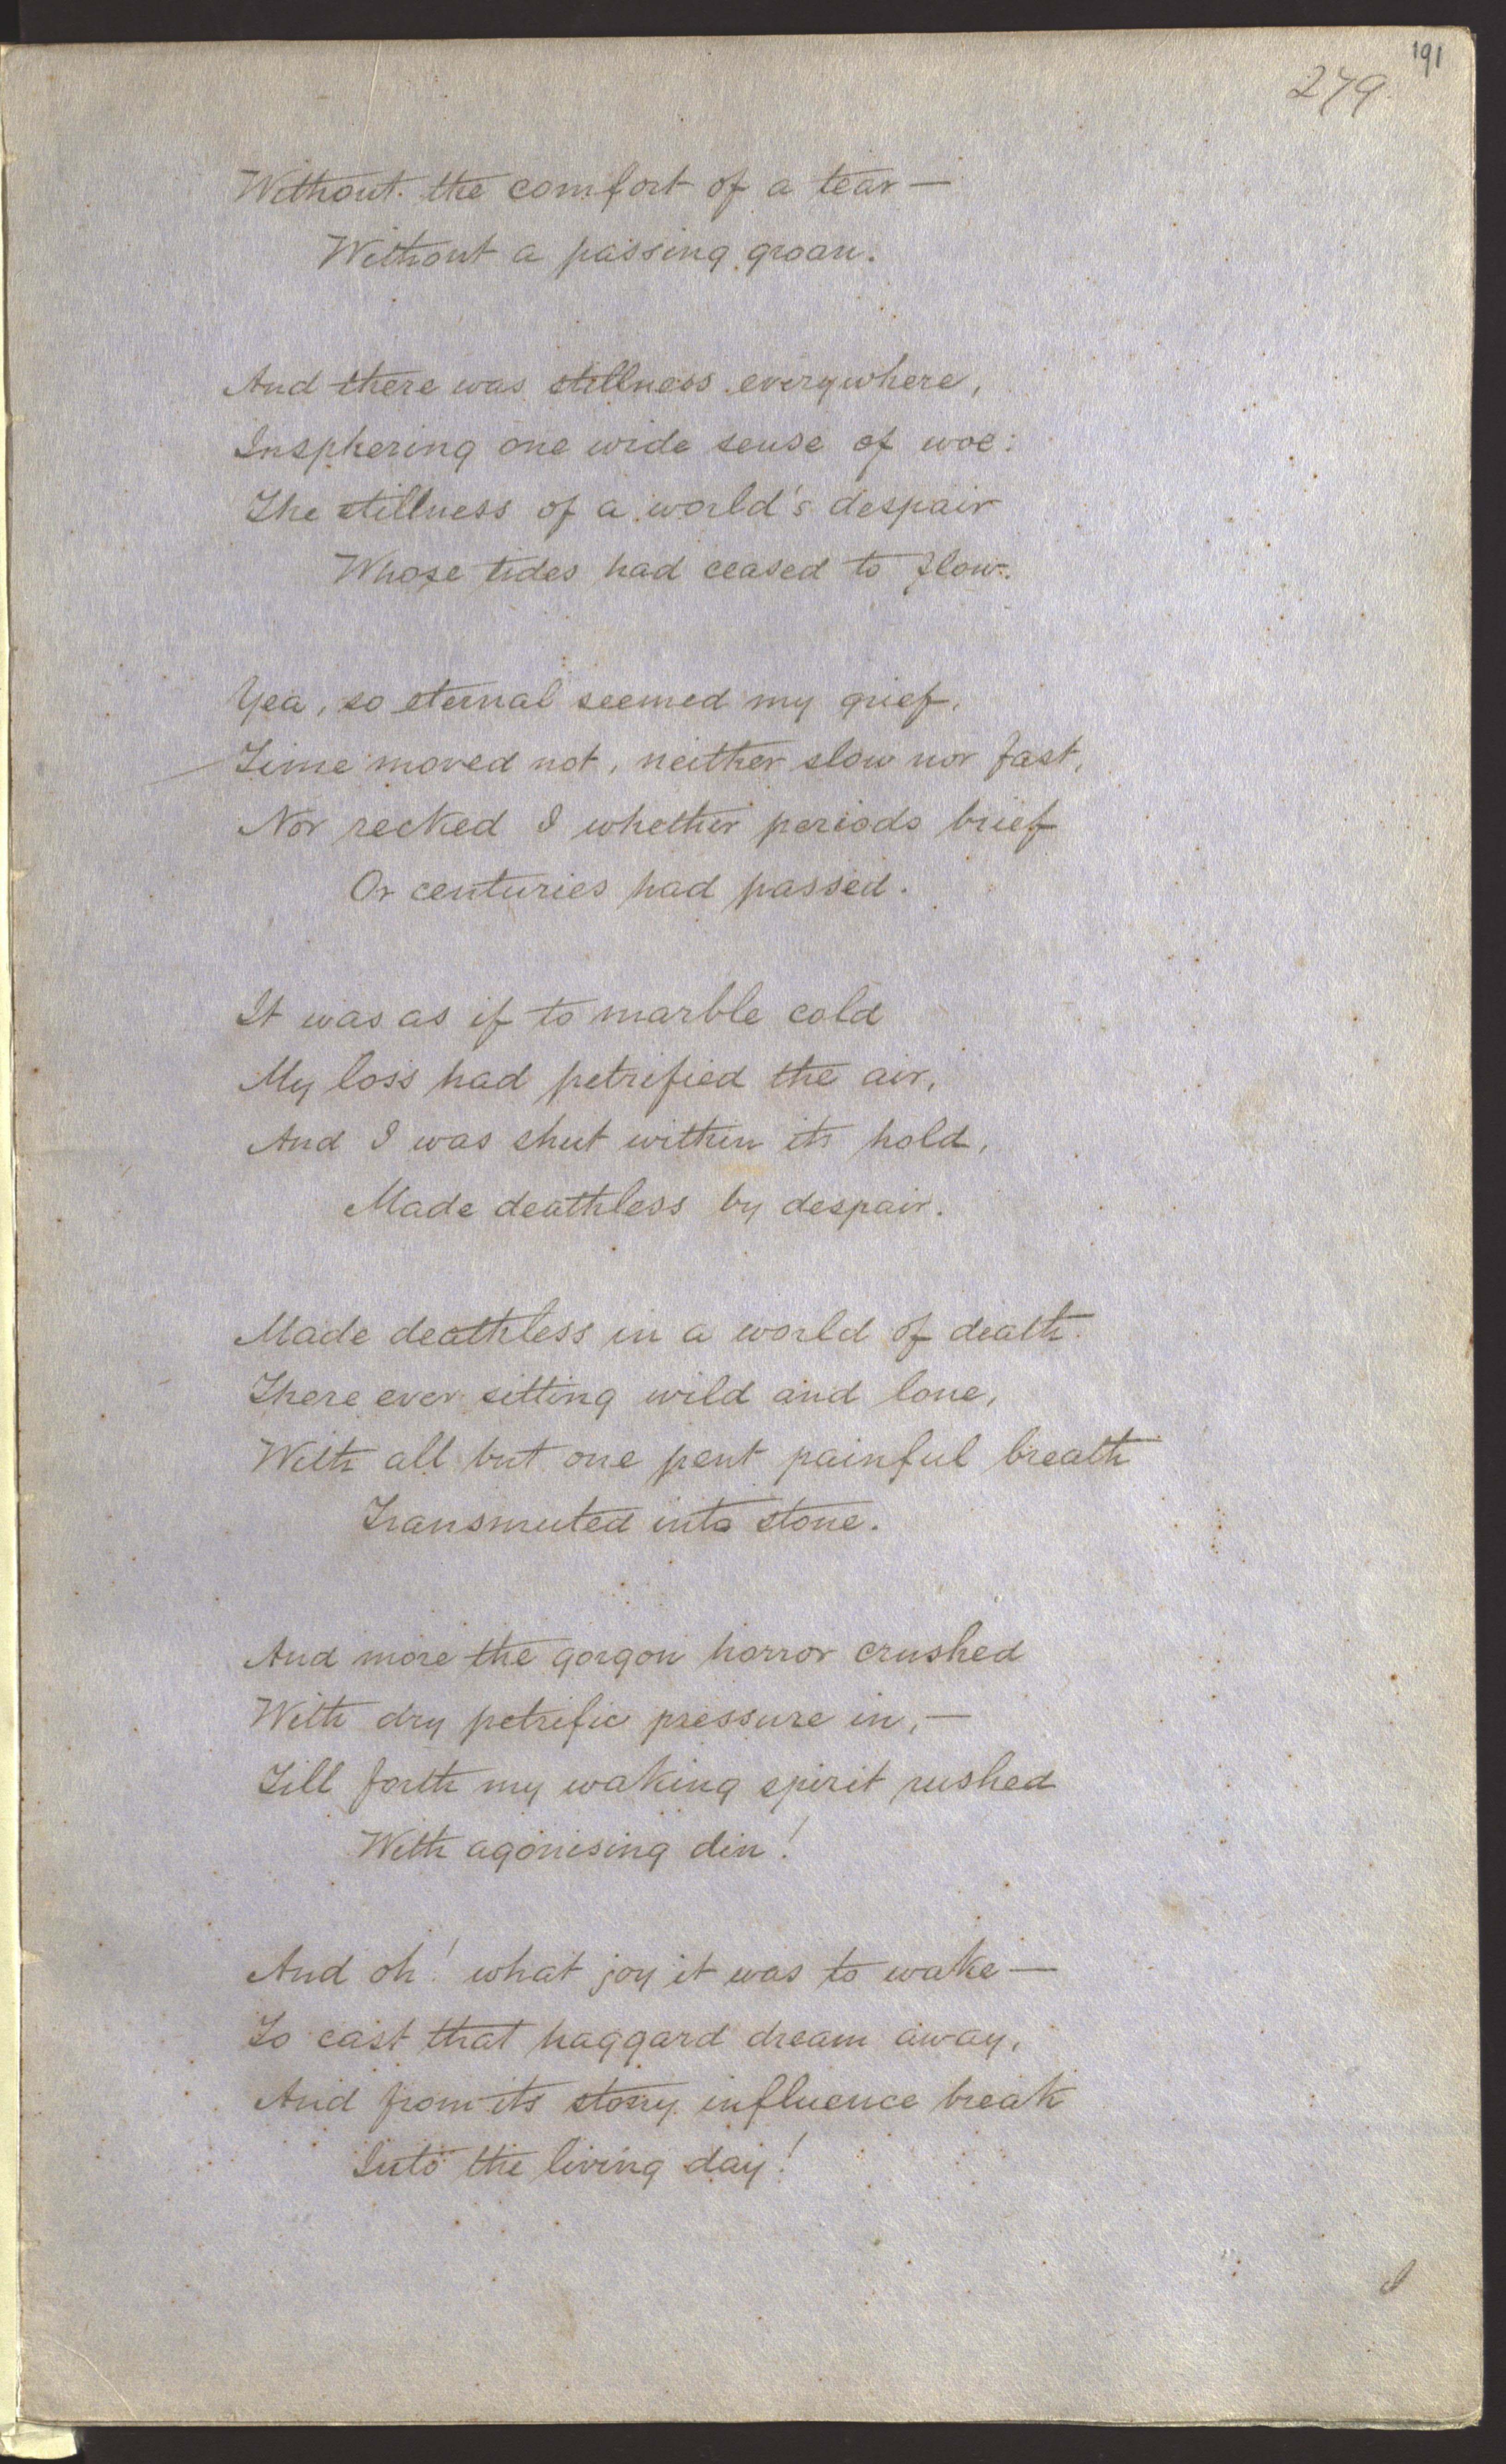 191
279.
Without the comfort of a tear —
Without a passing groan.
And there was stillness everywhere,
Insphering one wide sense of woe:
The stillness of a world's despair
Whose tides had ceased to flow.
Yea, so eternal seemed my grief,
Time moved not, neither slow nor fast,
Nor recked I whether periods brief
Or centuries had passed.
It was as if to marble cold
My loss had petrified the air,
And I was shut within its hold,
Made deathless by despair.
Made deathless in a world of death.
There ever sitting wild and lone,
With all but one pent painful breath
Transmuted into stone.
And more the gorgon horror crushed
With dry petrific pressure in, —
Till forth my waking spirit rushed
With agonising din!
And oh! what joy it was to wake —
To cast that haggard dream away,
And from its stony influence break
Into the living day!
I